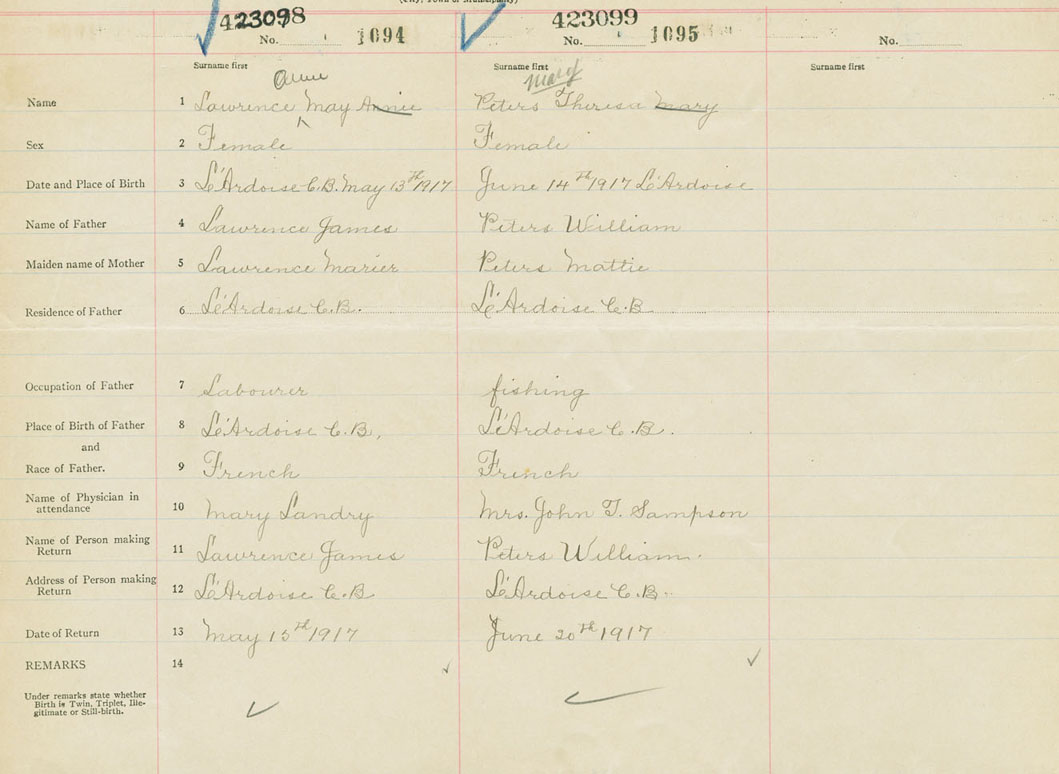 (City, Town or Municipality)
423098 423099
No. 1094 No. 1095 No.
Surname first Surname first Surname first
Annie Mary
Name 1 Lawrence May Annie Peters Theresa Mary
Sex 2 Female Female
Date and Place of Birth 3 L'Ardoise C.B. May 13th 1917 June 14th 1917 L'Ardoise
Name of Father 4 Lawrence James Peters William
Maiden name of Mother 5 Lawrence Marier Peters Mattie
Residence of Father 6 L'Ardoise C.B. L'Ardoise C.B.
Occupation of Father 7 Labourer fishing
Place of Birth of Father 8 L'Ardoise C.B. L'Ardoise C.B.
and
Race of Father. 9 French French
Name of Physician in
attendance 10 Mary Landry Mrs. John T. Sampson
Name of Person making
Return 11 Lawrence James Peters William.
Address of Person making
Return 12 L'Ardoise C.B L'Ardoise C.B.
Date of Return 13 May 15th 1917 June 20th 1917
REMARKS 14
Under remarks state whether
Birth is Twin, Triplet, Ille-
gitimate or Still-birth.